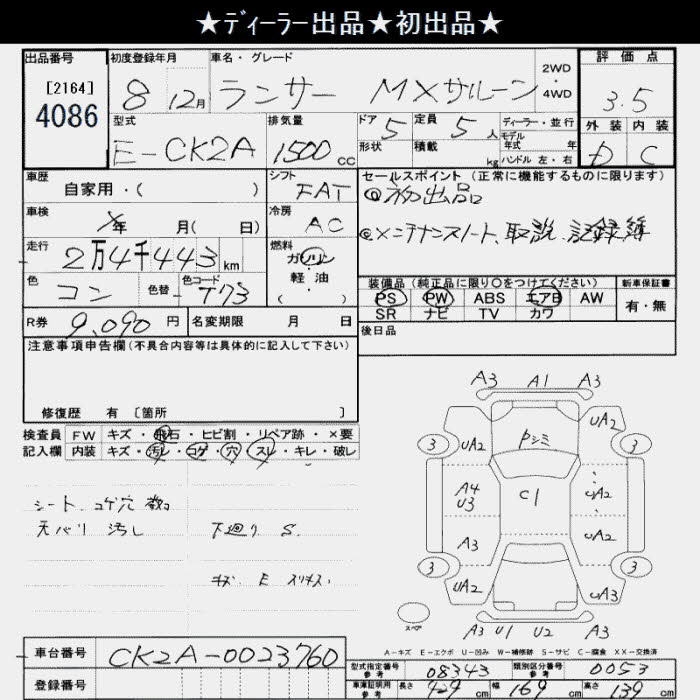 ★ディーラー出品★初出品★
出品番号 初度登録年月 車名・グレード 2WD・4WD 評価点
[2164] 4086 8 12月 ランサー MXサルーン 3.5
型式 排気量 ドア 5 定員 5人 ディーラー・並行 外装 内装
E-CK2A 1500cc 形状 積載 kg モデル年式 年 D C
ハンドル 左・右
車歴 自家用・( ) シフト FAT セールスポイント(正常に機能するものに限ります)
◎初出品
車検 年 月( 日) 冷房 AC
◎メンテナンスノート、取説、記録簿
走行 2万4千443km 燃料 ガソリン・軽・油( )
色 コン 色替 色コード T73 装備品(純正品に限り○をつけてください) 新車保証書
PS PW ABS エアB AW 有・無
SR ナビ TV カワ
R券 9,090円 名変期限 月 日 後日品
注意事項申告欄(不具合内容等は具体的に記入して下さい)
修復歴 有 [箇所 ]
検査員 FW キズ・飛石・ヒビ割・リペア跡・×要
記入欄 内装 キズ・汚レ・コゲ・穴・スレ・キレ・破レ
シート、コゲ穴 数コ
天バリ 汚レ 下廻り S.
キズ・E
A3 A1 A3
UA2 Pシミ UA2
3 3
A4 U3 C1 UA2
A3 UA2
3 3
UA2 UA3
スペア
A3 U1 U2 A3
A-キズ E-エクボ U-凹み W-補修跡 S-サビ C-腐食 XX-交換済
車台番号 CK2A-0023760
登録番号
型式指定番号 参考 08343 類別区分番号 参考 0053
車庫証明用 参考 長さ 429cm 幅 169cm 高さ 139cm